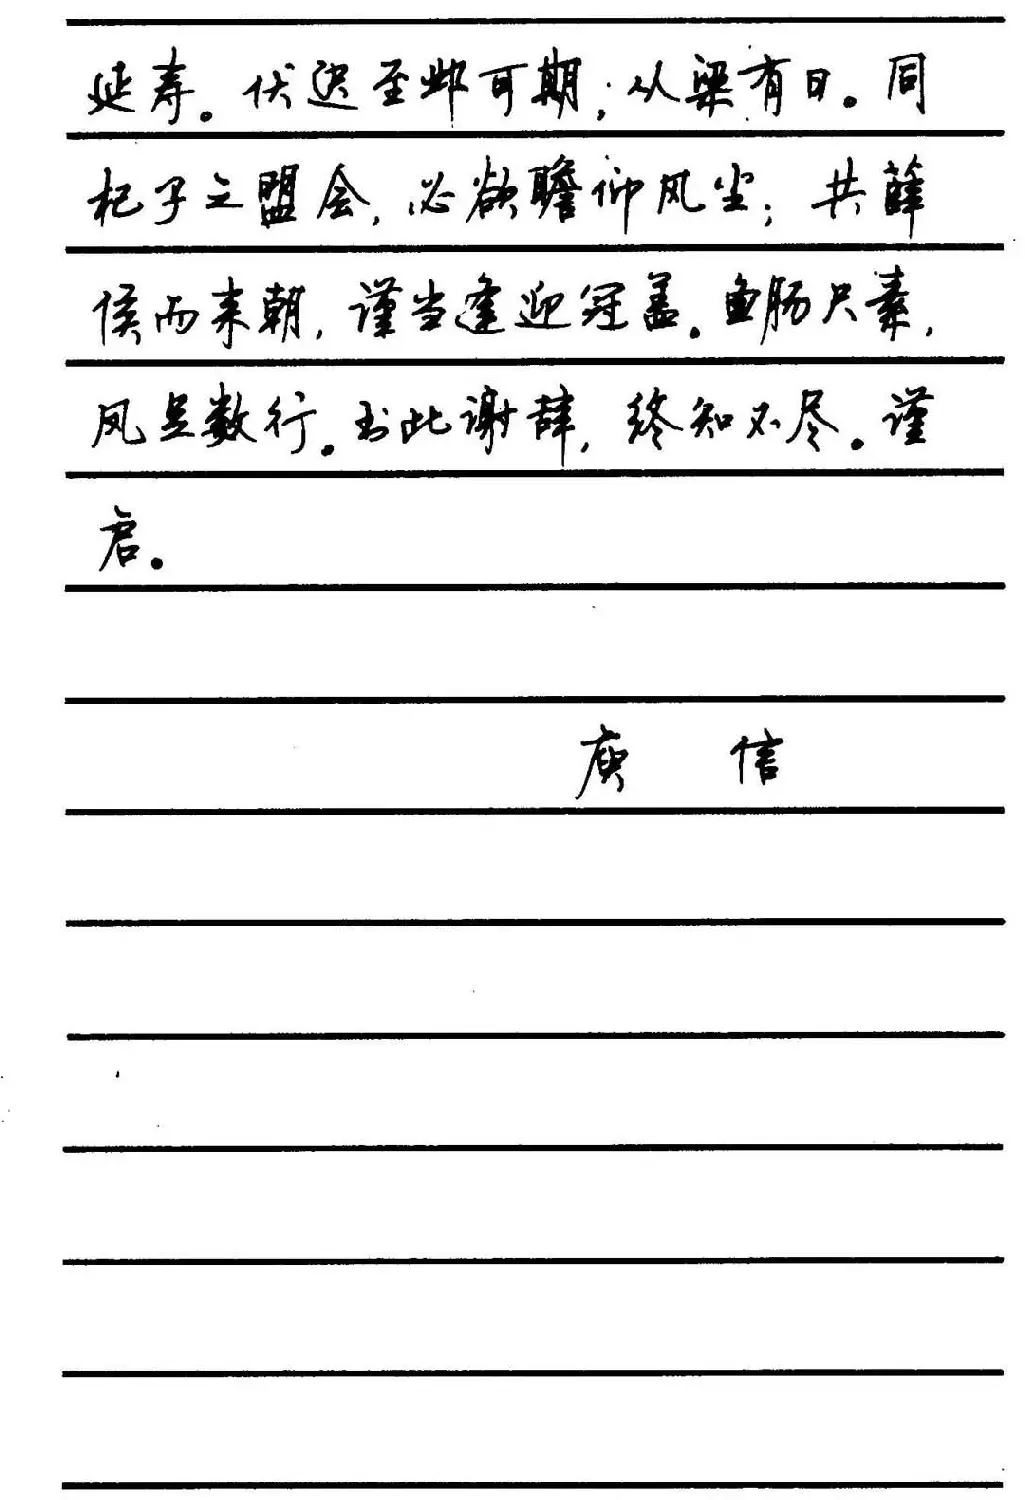 延寿。伏迟至邺可期；从梁有日。同
杞子之盟会，必欲瞻仰风尘；共薛
侯而来朝，谨当逢迎冠盖。鱼肠尺素，
凤足数行。书此谢辞，终知不尽。谨
启。
庾 信